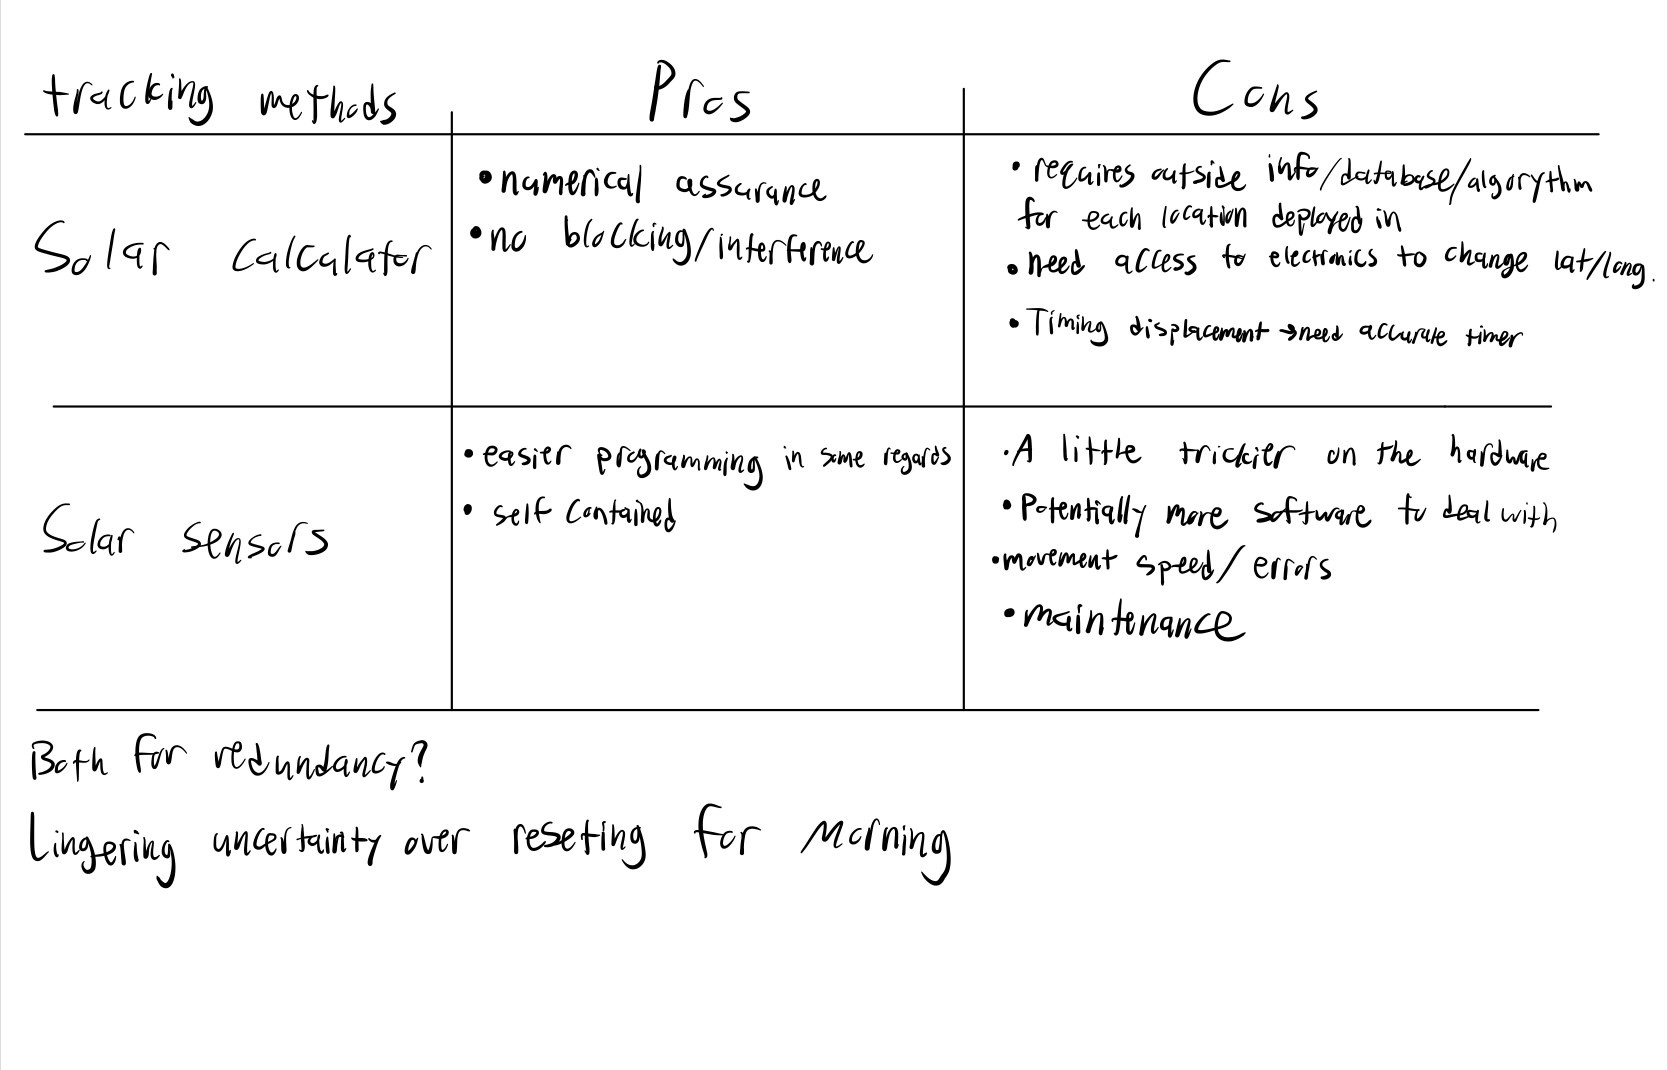 tracking methods Pros Cons
Solar calculator
• numerical assurance
• no blocking/interference
• requires outside info/database/algorythm
for each location deployed in
• need access to electronics to change lat/long.
• Timing displacement → need accurate timer
Solar sensors
• easier programming in some regards
• self contained
• A little trickier on the hardware
• Potentially more software to deal with
• movement speed/errors
• maintenance
Both for redundancy?
Lingering uncertainty over reseting for morning